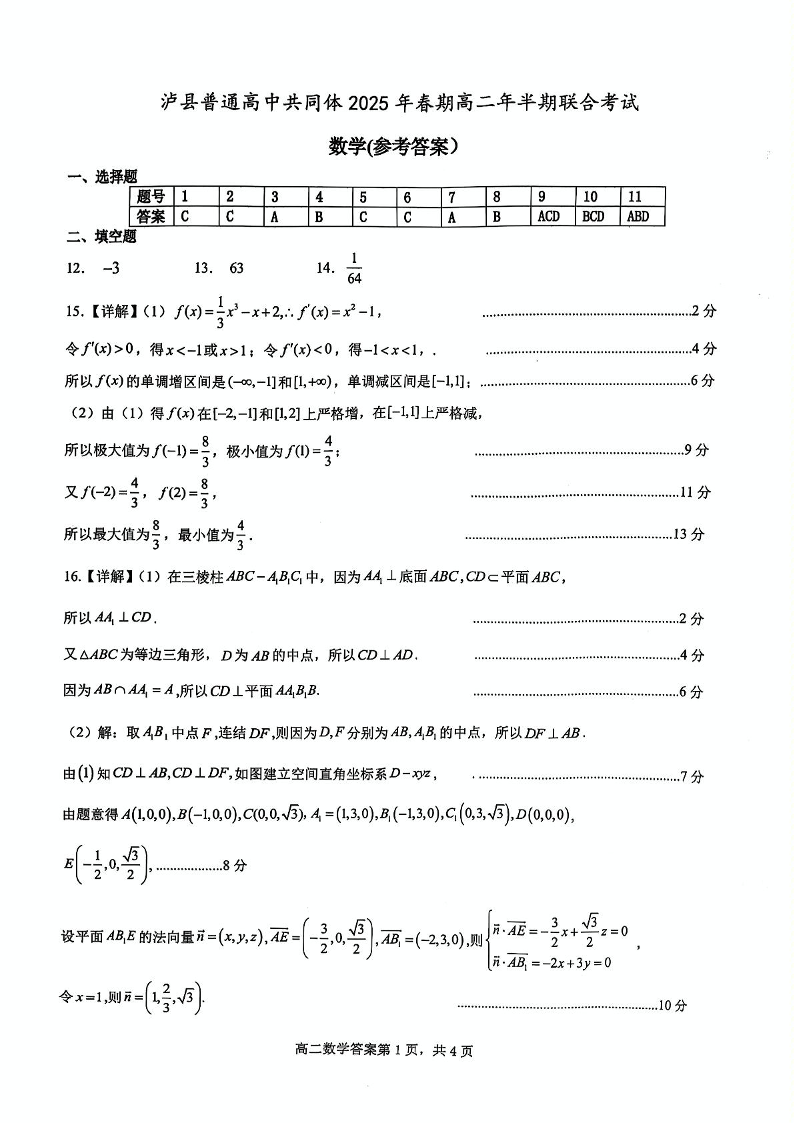 泸县普通高中共同体 2025 年春期高二年半期联合考试
数学(参考答案）
一、选择题
题号 1 2 3 4 5 6 7 8 9 10 11
答案 C C A B C C A B ACD BCD ABD
二、填空题
12. −3 13. 63 14. 1/64
15.【详解】（1）f(x)=1/3x³−x+2,∴f'(x)=x²−1， ........................................2 分
令f'(x)>0，得x<−1或x>1；令f'(x)<0，得−1<x<1，. ........................................4 分
所以f(x)的单调增区间是(−∞,−1]和[1,+∞)，单调减区间是[−1,1]；........................................6 分
（2）由（1）得f(x)在[−2,−1]和[1,2]上严格增，在[−1,1]上严格减，
所以极大值为f(−1)=8/3，极小值为f(1)=4/3； ........................................9 分
又f(−2)=4/3，f(2)=8/3， ........................................11 分
所以最大值为8/3，最小值为4/3. ........................................13 分
16.【详解】（1）在三棱柱ABC−A₁B₁C₁中，因为AA₁⊥底面ABC,CD⊂平面ABC，
所以AA₁⊥CD. ........................................2 分
又△ABC为等边三角形，D为AB的中点，所以CD⊥AD. ........................................4 分
因为AB∩AA₁=A,所以CD⊥平面AA₁B₁B. ........................................6 分
（2）解：取A₁B₁中点F,连结DF,则因为D,F分别为AB,A₁B₁的中点，所以DF⊥AB.
由(1)知CD⊥AB,CD⊥DF,如图建立空间直角坐标系D−xyz， ........................................7 分
由题意得A(1,0,0),B(−1,0,0),C(0,0,√3)，A₁=(1,3,0),B₁(−1,3,0),C₁(0,3,√3),D(0,0,0),
E(−1/2,0,√3/2), ...................8 分
设平面AB₁E的法向量n⃗=(x,y,z),AE⃗=(−3/2,0,√3/2),AB₁⃗=(−2,3,0),则{n⃗·AE⃗=−3/2x+√3/2z=0
n⃗·AB₁⃗=−2x+3y=0 ，
令x=1,则n⃗=(1,2/3,√3). ........................................10 分
高二数学答案第 1 页，共 4 页